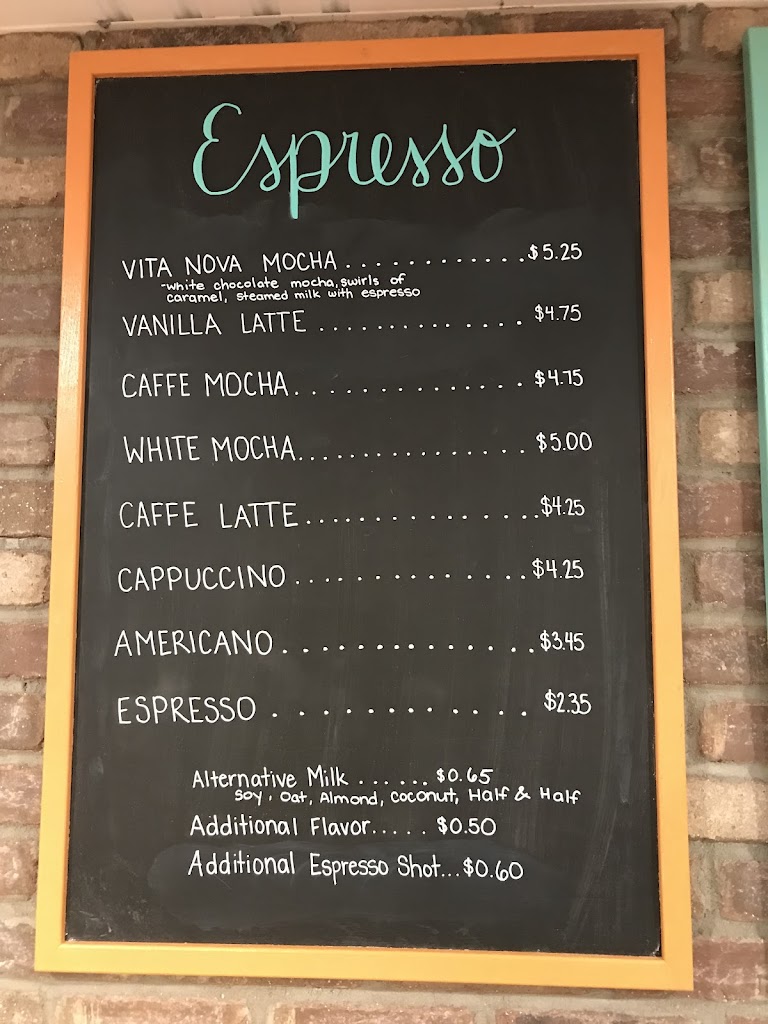 Espresso
VITA NOVA MOCHA............$5.25
-white chocolate mocha, swirls of
caramel, steamed milk with espresso
VANILLA LATTE ............... $4.75
CAFFE MOCHA............... $4.75
WHITE MOCHA................ $5.00
CAFFE LATTE................$4.25
CAPPUCCINO ...............$4.25
AMERICANO ..............$3.45
ESPRESSO ............ $2.35
Alternative Milk ...... $0.65
Soy, Oat, Almond, Coconut, Half & Half
Additional Flavor..... $0.50
Additional Espresso Shot...$0.60